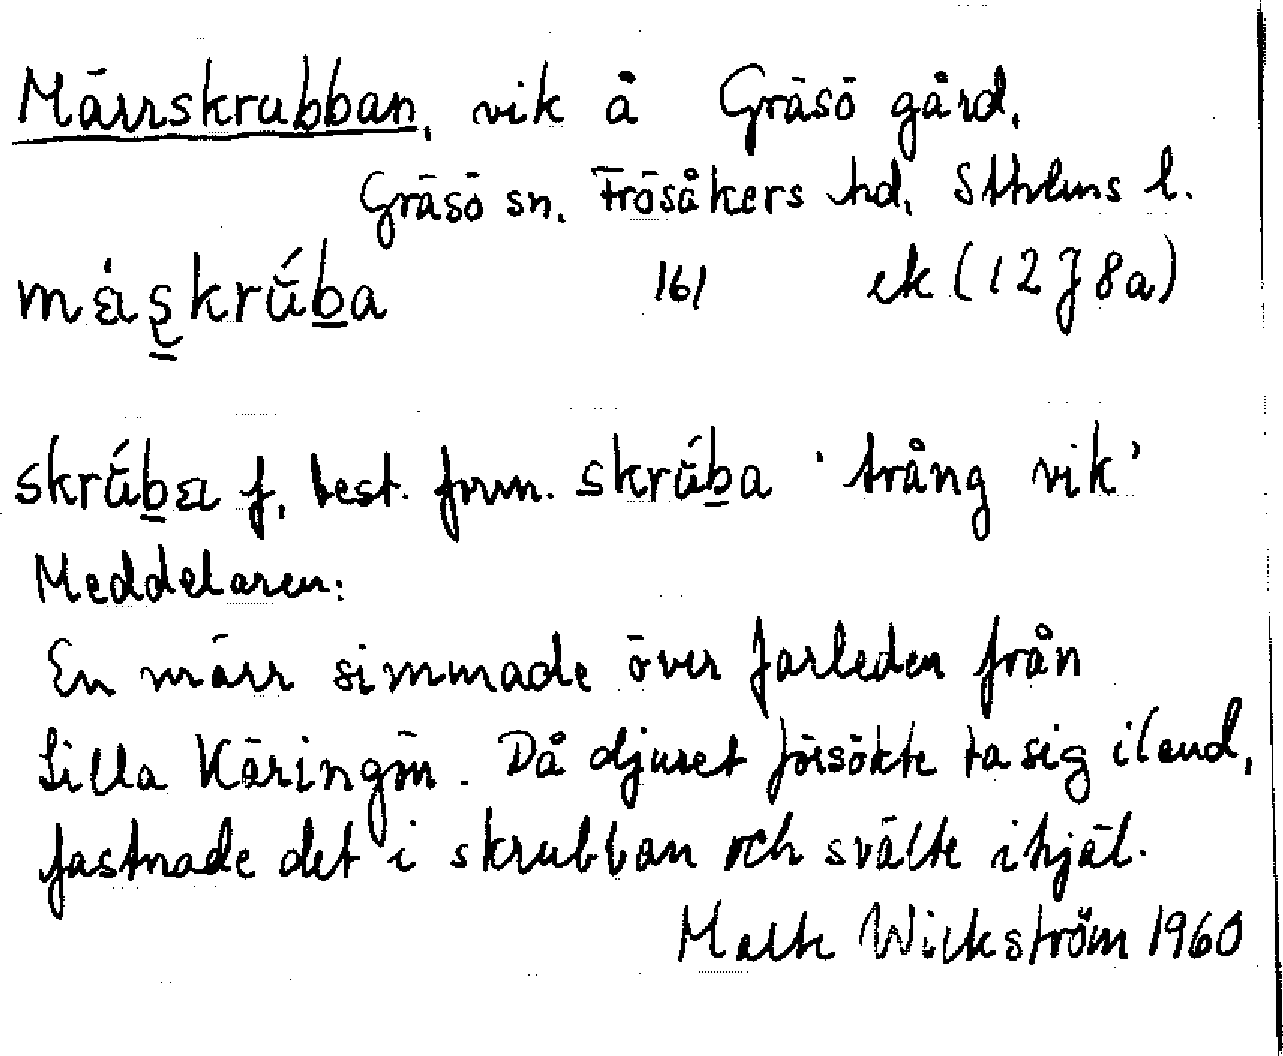 Märrskrubban, vik å Gräsö gård,
Gräsö sn. Frösåkers hd. Sthlms l.
161 ek (12 J 8a)
f. best. form. 'trång vik'
Meddelaren:
En märr simmade över farleden från
Lilla Käringön. Då djuret försökte ta sig iland,
fastnade det i skrubban och svälte ihjäl.
Malte Wickström 1960